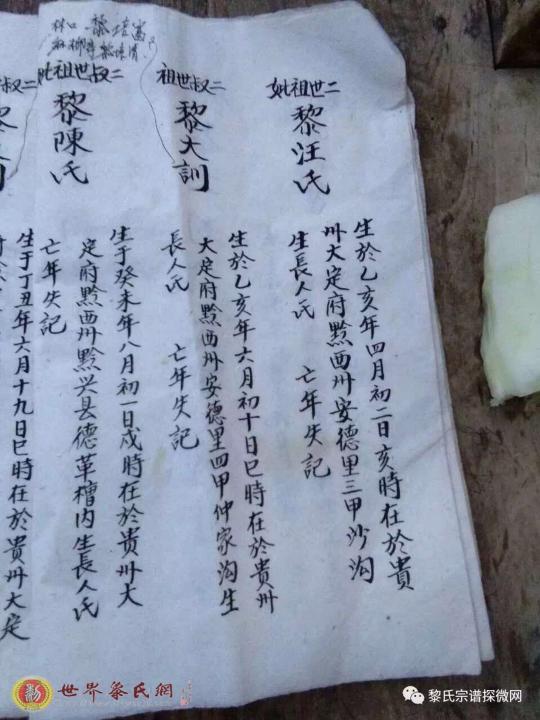 二世祖妣
黎汪氏
生於乙亥年四月初二日亥時在於貴
州大定府黔西州安德里三甲沙沟
生長人氏　亡年失記
二世叔祖
黎大訓
生於乙亥年六月初十日巳時在於貴州
大定府黔西州安德里四甲仲家沟生
長人氏　亡年失記
二世叔祖妣
黎陳氏
生于癸未年八月初一日戌時在於貴州大
定府黔西州黔兴县德革檀内生長人氏
亡年失記
生于丁丑年六月十九日巳時在於貴州大定
林口
黎培
世界黎氏網
黎氏宗谱探微网